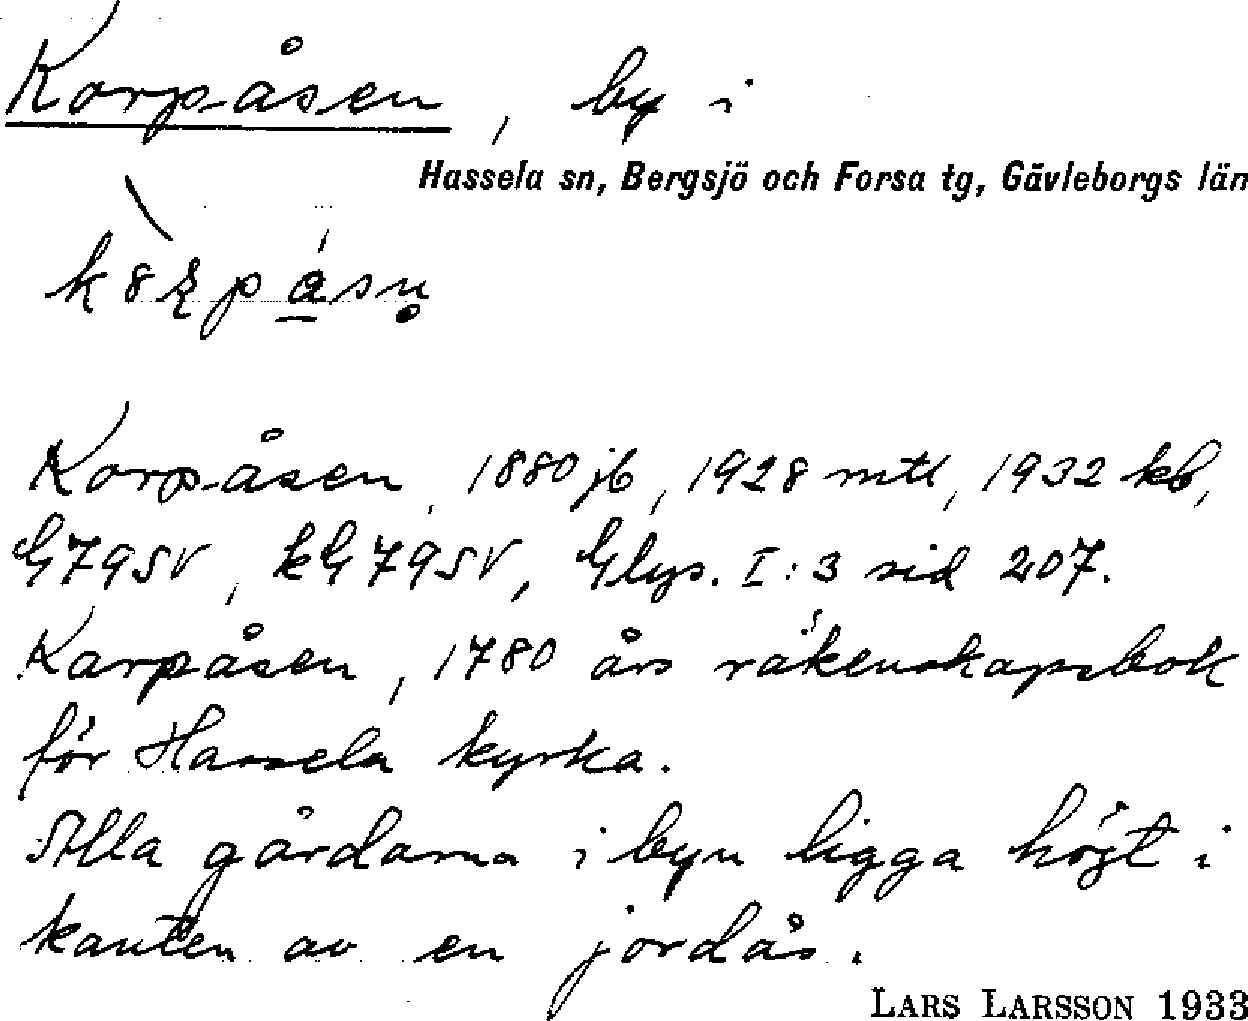 Korpåsen, by i
Hassela sn, Bergsjö och Forsa tg, Gävleborgs län
Korpåsen, 1880 jb, 1928 mtl, 1932 kb,
G79SV, kG79SV, Glys. I:3 sid 207.
Karpåsen, 1780 års räkenskapsbok
för Hassela kyrka.
Alla gårdarna i byn ligga högt i
kanten av en jordås.
LARS LARSSON 1933